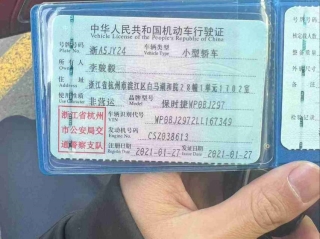 中华人民共和国机动车行驶证
Vehicle License of the People's Republic of China
号牌号码 浙A5JY24 车辆类型 小型轿车
Plate No. Vehicle Type
所有人 李毅毅
Owner
住址 浙江省杭州市滨江区白马湖和院2幢1单元1102室
Address
使用性质 非营运 品牌型号 保时捷WP0BJ297
浙江省杭州
市公安局交
道警察支队
车辆识别代号 WP0BJ2972LL167349
VIN
发动机号码 C52038613
Engine No.
注册日期 2021-01-27 发证日期 2021-01-27
Register Date Issue Date